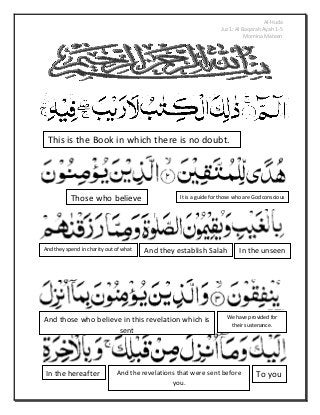 Al-Huda
Juz 1: Al Baqarah Ayah 1-5
Momina Mateen
بِسْمِ اللّٰهِ الرَّحْمٰنِ الرَّحِيْمِ
الٓمّٓ ۚ ذٰلِكَ الْكِتٰبُ لَا رَيْبَ ۛ فِيْهِ
This is the Book in which there is no doubt.
هُدًى لِّلْمُتَّقِيْنَ ۙ الَّذِيْنَ يُؤْمِنُوْنَ
Those who believe
It is a guide for those who are God conscious
بِالْغَيْبِ وَيُقِيْمُوْنَ الصَّلٰوةَ وَمِمَّا رَزَقْنٰهُمْ
And they spend in charity out of what
And they establish Salah
In the unseen
يُنْفِقُوْنَ ۙ وَالَّذِيْنَ يُؤْمِنُوْنَ بِمَآ اُنْزِلَ
And those who believe in this revelation which is
sent
We have provided for
their sustenance.
اِلَيْكَ وَمَآ اُنْزِلَ مِنْ قَبْلِكَ ۚ وَبِالْاٰخِرَةِ
In the hereafter
And the revelations that were sent before
you.
To you